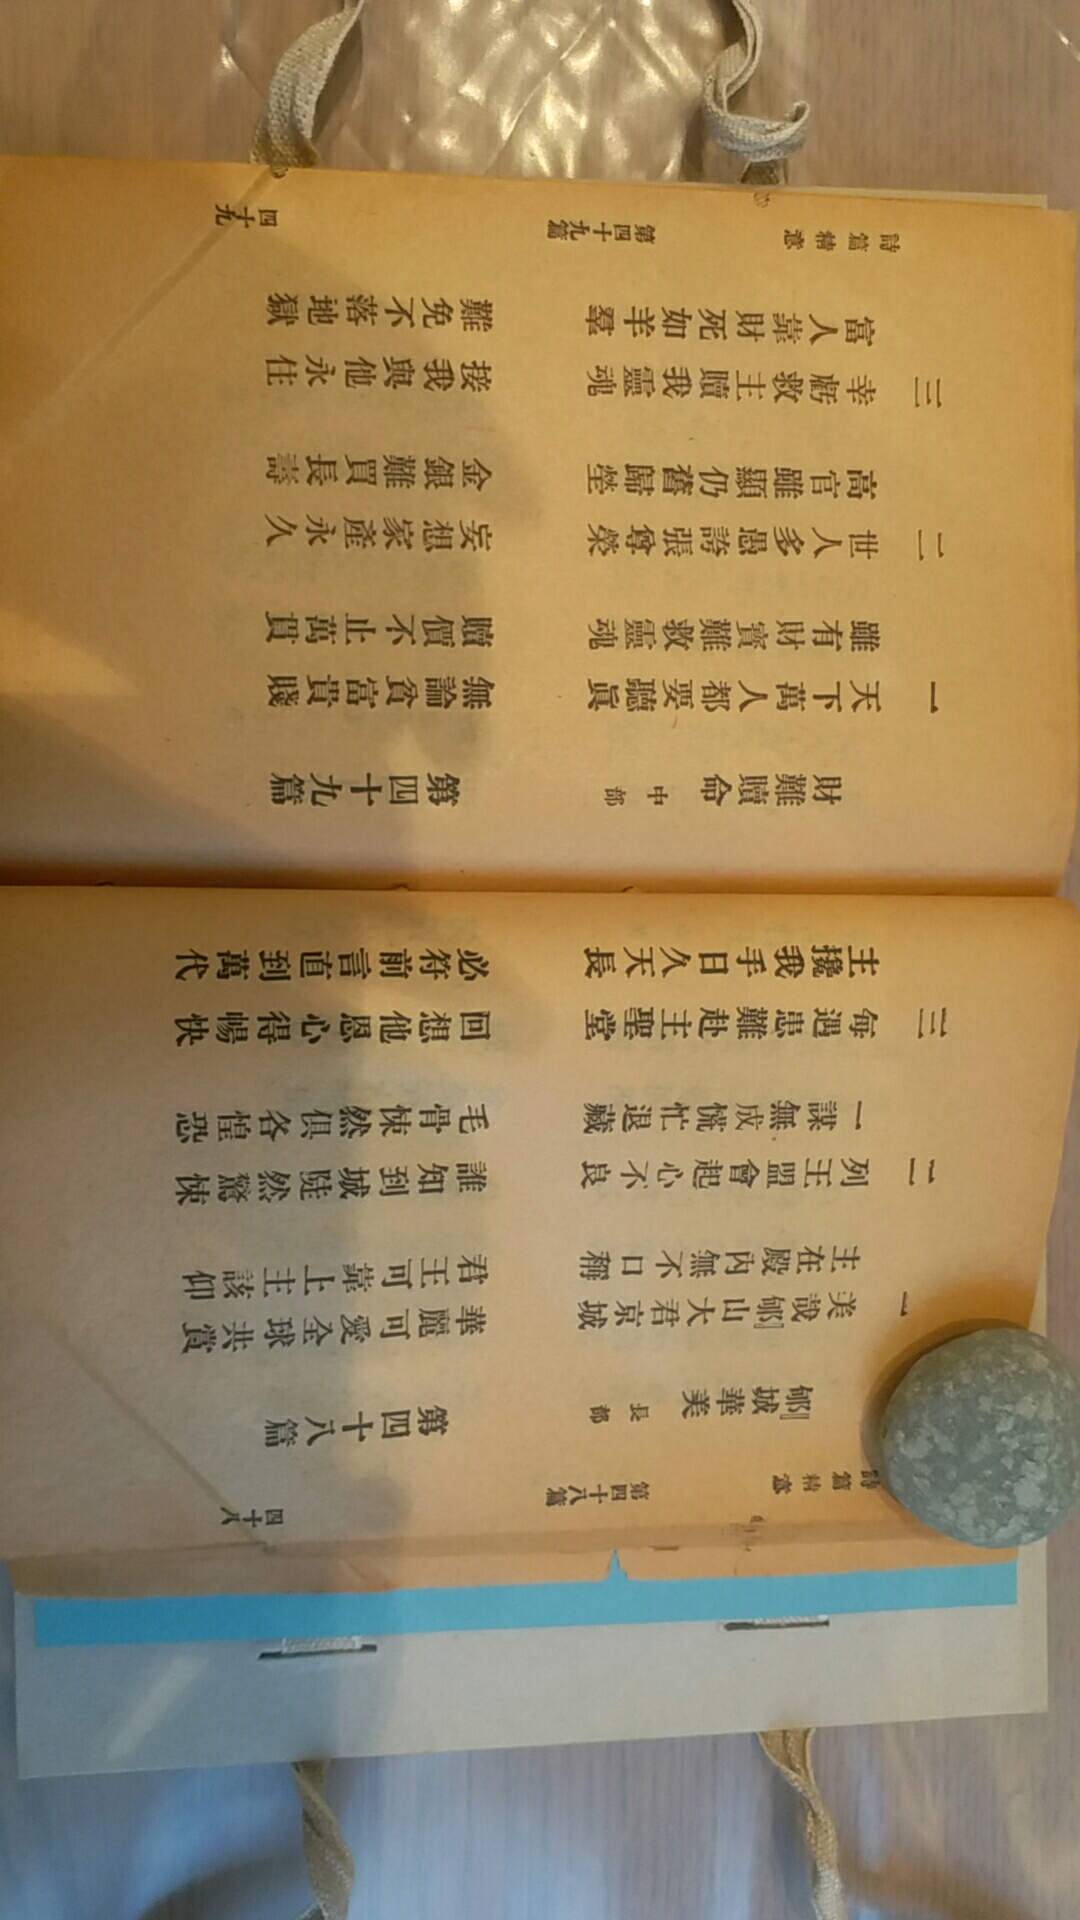 詩篇精意 第四十八篇 四十八
郇城華美 長部 第四十八篇
一 美哉郇山大君京城 華麗可愛全球共賞
主在殿內無不口稱 君王可靠上主該仰
二 列王盟會起心不良 誰知到城陡然驚悚
一謀無成慌忙退藏 毛骨悚然俱各惶恐
三 每遇患難赴主聖堂 回想他恩心得暢快
主攙我手日久天長 必符前言直到萬代
財難贖命 中部 第四十九篇
一 天下萬人都要聽眞 無論貧富貴賤
雖有財寳難救靈魂 贖價不止萬貫
二 世人多愚誇張尊榮 妄想家產永久
高官雖顯仍舊歸塋 金銀難買長壽
三 幸虧救主贖我靈魂 接我與他永住
富人靠財死如羊羣 難免不落地獄
詩篇精意 第四十九篇 四十九